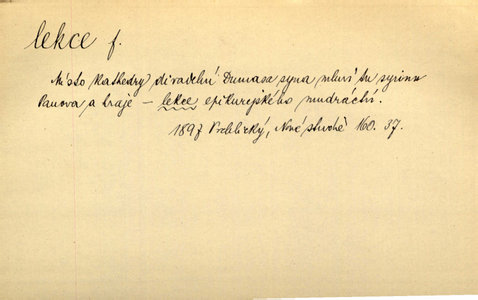 lekce f.
Místo kathedry divadelní Dumasa syna mluví tu syrinx
Panova a hraje – lekce epikurejského mudráctví.
1897 Vrchlický, Nové 160. 37.